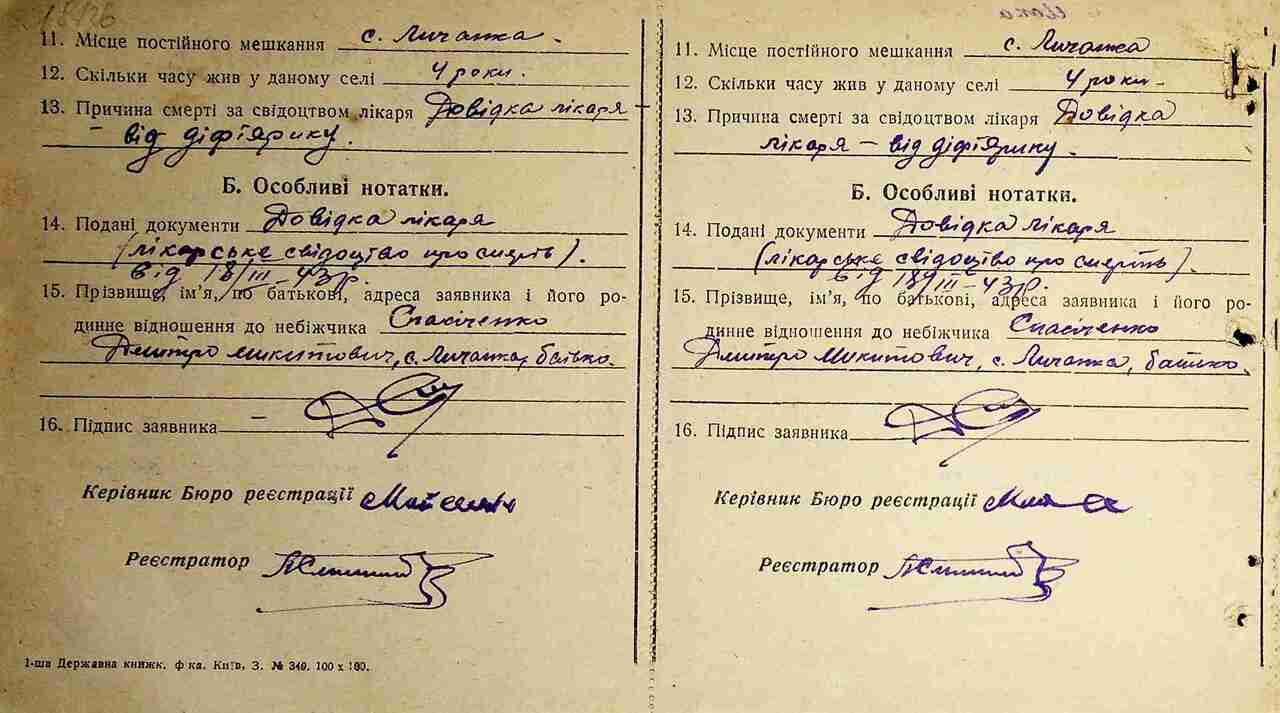 11. Місце постійного мешкання с. Личанка.
12. Скільки часу жив у даному селі 4 роки.
13. Причина смерті за свідоцтвом лікаря Довідка лікаря
– від діфтярику.
Б. Особливі нотатки.
14. Подані документи Довідка лікаря
(лікарське свідоцтво про смерть).
від 18/III–43р.
15. Прізвище, ім'я, по батькові, адреса заявника і його ро-
динне відношення до небіжчика Спасіченко
Дмитро Микитович, с. Личанка, батько.
16. Підпис заявника
Керівник Бюро реєстрації
Реєстратор
1-ша Державна книжк. ф-ка. Київ, З. № 349. 100 х 100.
11. Місце постійного мешкання с. Личанка
12. Скільки часу жив у даному селі 4 роки –
13. Причина смерті за свідоцтвом лікаря Довідка
лікаря – від діфтярику.
Б. Особливі нотатки.
14. Подані документи Довідка лікаря
(лікарське свідоцтво про смерть).
від III–43р.
15. Прізвище, ім'я, по батькові, адреса заявника і його ро-
динне відношення до небіжчика Спасіченко
Дмитро Микитович, с. Личанка, батько.
16. Підпис заявника
Керівник Бюро реєстрації
Реєстратор